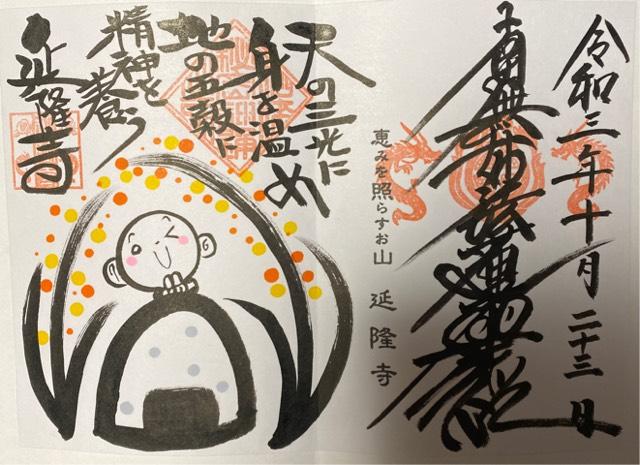 令和三年十月二十三日
南無妙法蓮華経
恵みを照らすお山 延隆寺
天の三光に
身を温め
地の五穀に
精神を養う
延隆寺